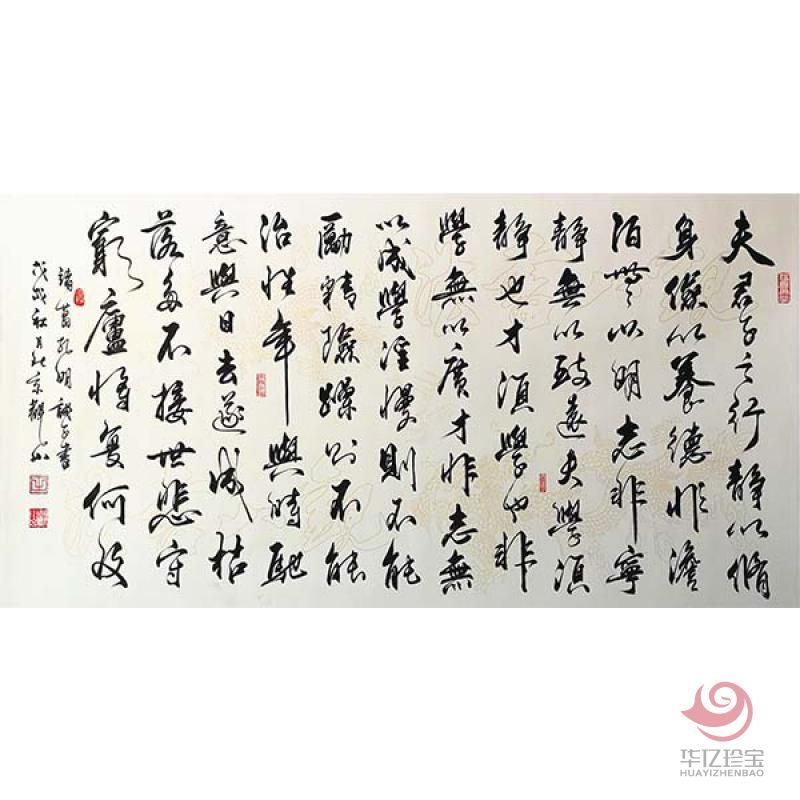 夫君子之行静以脩
身儉以養德非澹
泊無以明志非寧
静無以致遠夫學須
静也才須學也非
學無以廣才非志無
以成學淫慢則不能
勵精險躁則不能
治性年與時馳
意與日去遂成枯
落多不接世悲守
窮廬将复何及
諸葛孔明誡子書
戊戌秋月於京
华亿珍宝
HUAYIZHENBAO